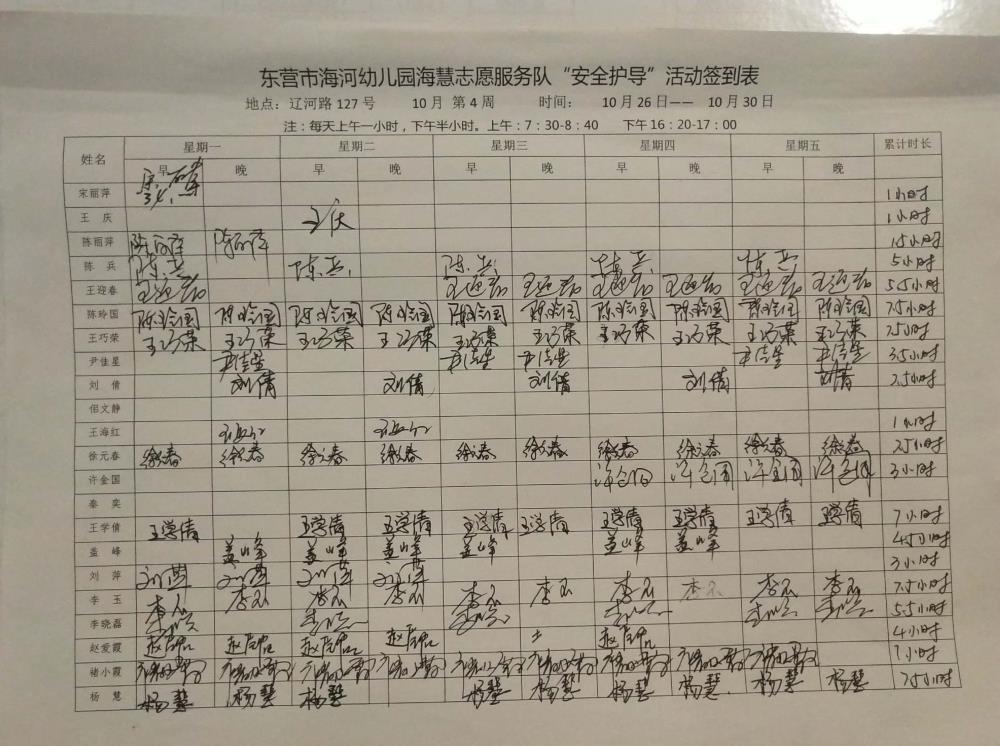 东营市海河幼儿园海慧志愿服务队“安全护导”活动签到表
地点：辽河路 127 号 10 月 第 4 周 时间： 10 月 26 日—— 10 月 30 日
注：每天上午一小时，下午半小时。上午：7：30-8：40 下午 16：20-17：00
姓名 星期一 星期二 星期三 星期四 星期五 累计时长
早 晚 早 晚 早 晚 早 晚 早 晚
宋丽萍 1小时
王 庆 王庆 1小时
陈丽萍 陈丽萍 陈丽萍 1.5小时
陈 兵 陈兵 陈兵 陈兵 陈兵 陈兵 5小时
王迎春 王迎春 王迎春 王迎春 王迎春 王迎春 王迎春 王迎春 5.5小时
陈玲国 陈玲国 陈玲国 陈玲国 陈玲国 陈玲国 陈玲国 陈玲国 陈玲国 陈玲国 陈玲国 7.5小时
王巧荣 王巧荣 王巧荣 王巧荣 王巧荣 王巧荣 王巧荣 王巧荣 王巧荣 王巧荣 王巧荣 7.5小时
尹佳星 尹佳星 尹佳星 尹佳星 尹佳星 尹佳星 3.5小时
刘 倩 刘倩 刘倩 刘倩 刘倩 刘倩 2.5小时
佀文静
王海红 王海红 王海红 1小时
徐元春 徐元春 徐元春 徐元春 徐元春 徐元春 徐元春 徐元春 徐元春 徐元春 徐元春 7.5小时
许金国 许金国 许金国 许金国 许金国 3小时
秦 奕
王学倩 王学倩 王学倩 王学倩 王学倩 王学倩 王学倩 王学倩 王学倩 王学倩 7小时
盖 峰 盖峰 盖峰 盖峰 盖峰 盖峰 盖峰 4.5小时
刘 萍 刘萍 刘萍 刘萍 刘萍 3小时
李 玉 李玉 李玉 李玉 李玉 李玉 李玉 李玉 李玉 李玉 李玉 7.5小时
李晓磊 5.5小时
赵爱霞 4小时
褚小霞 7小时
杨 慧 杨慧 杨慧 杨慧 杨慧 杨慧 杨慧 杨慧 杨慧 杨慧 7.5小时